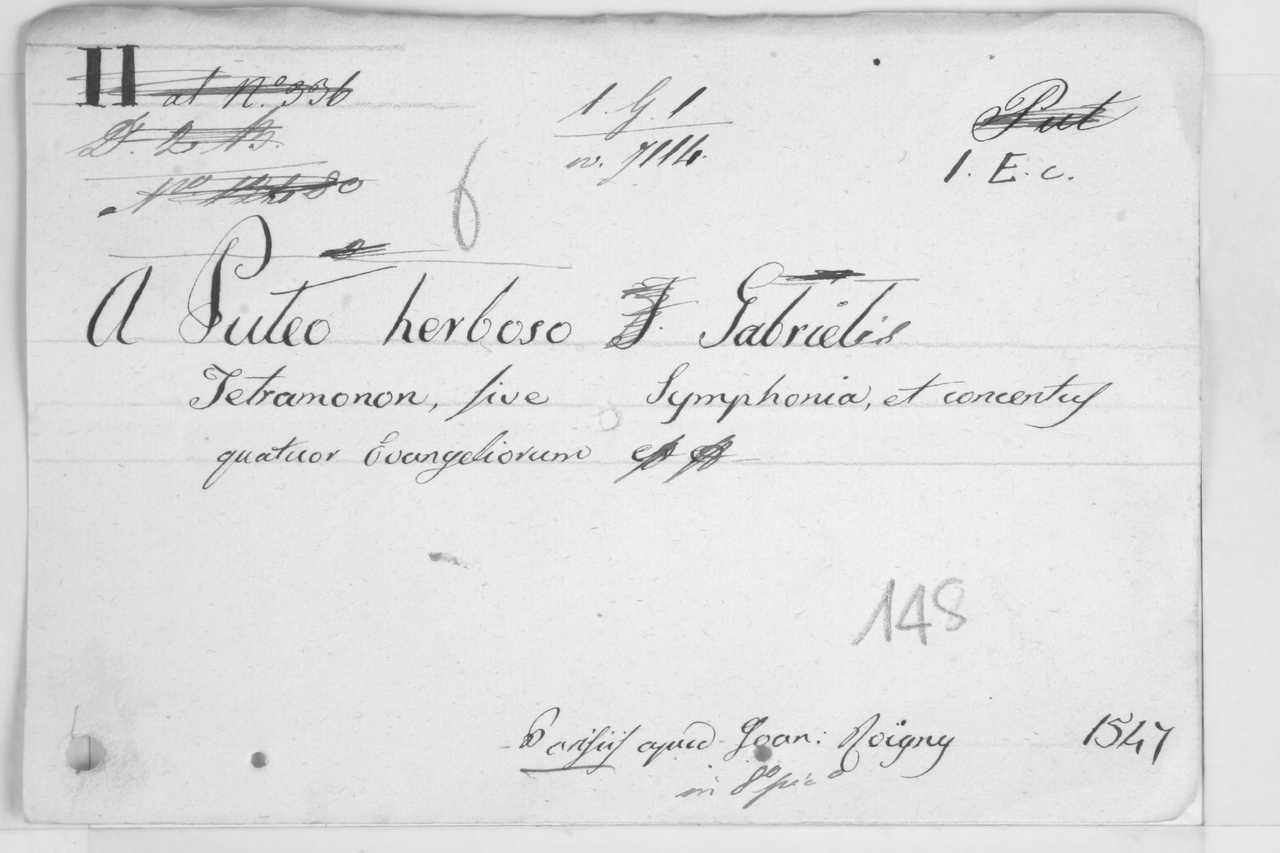 II at N.º 336
1. G. 1
n. 7114.
Put
1. E. c.
6
A Puteo herboso F. Gabrielis
Tetramonon, sive Symphonia, et concentus
quatuor Evangeliorum
148
Parisiis apud Joan: Roigny 1547
in 8º